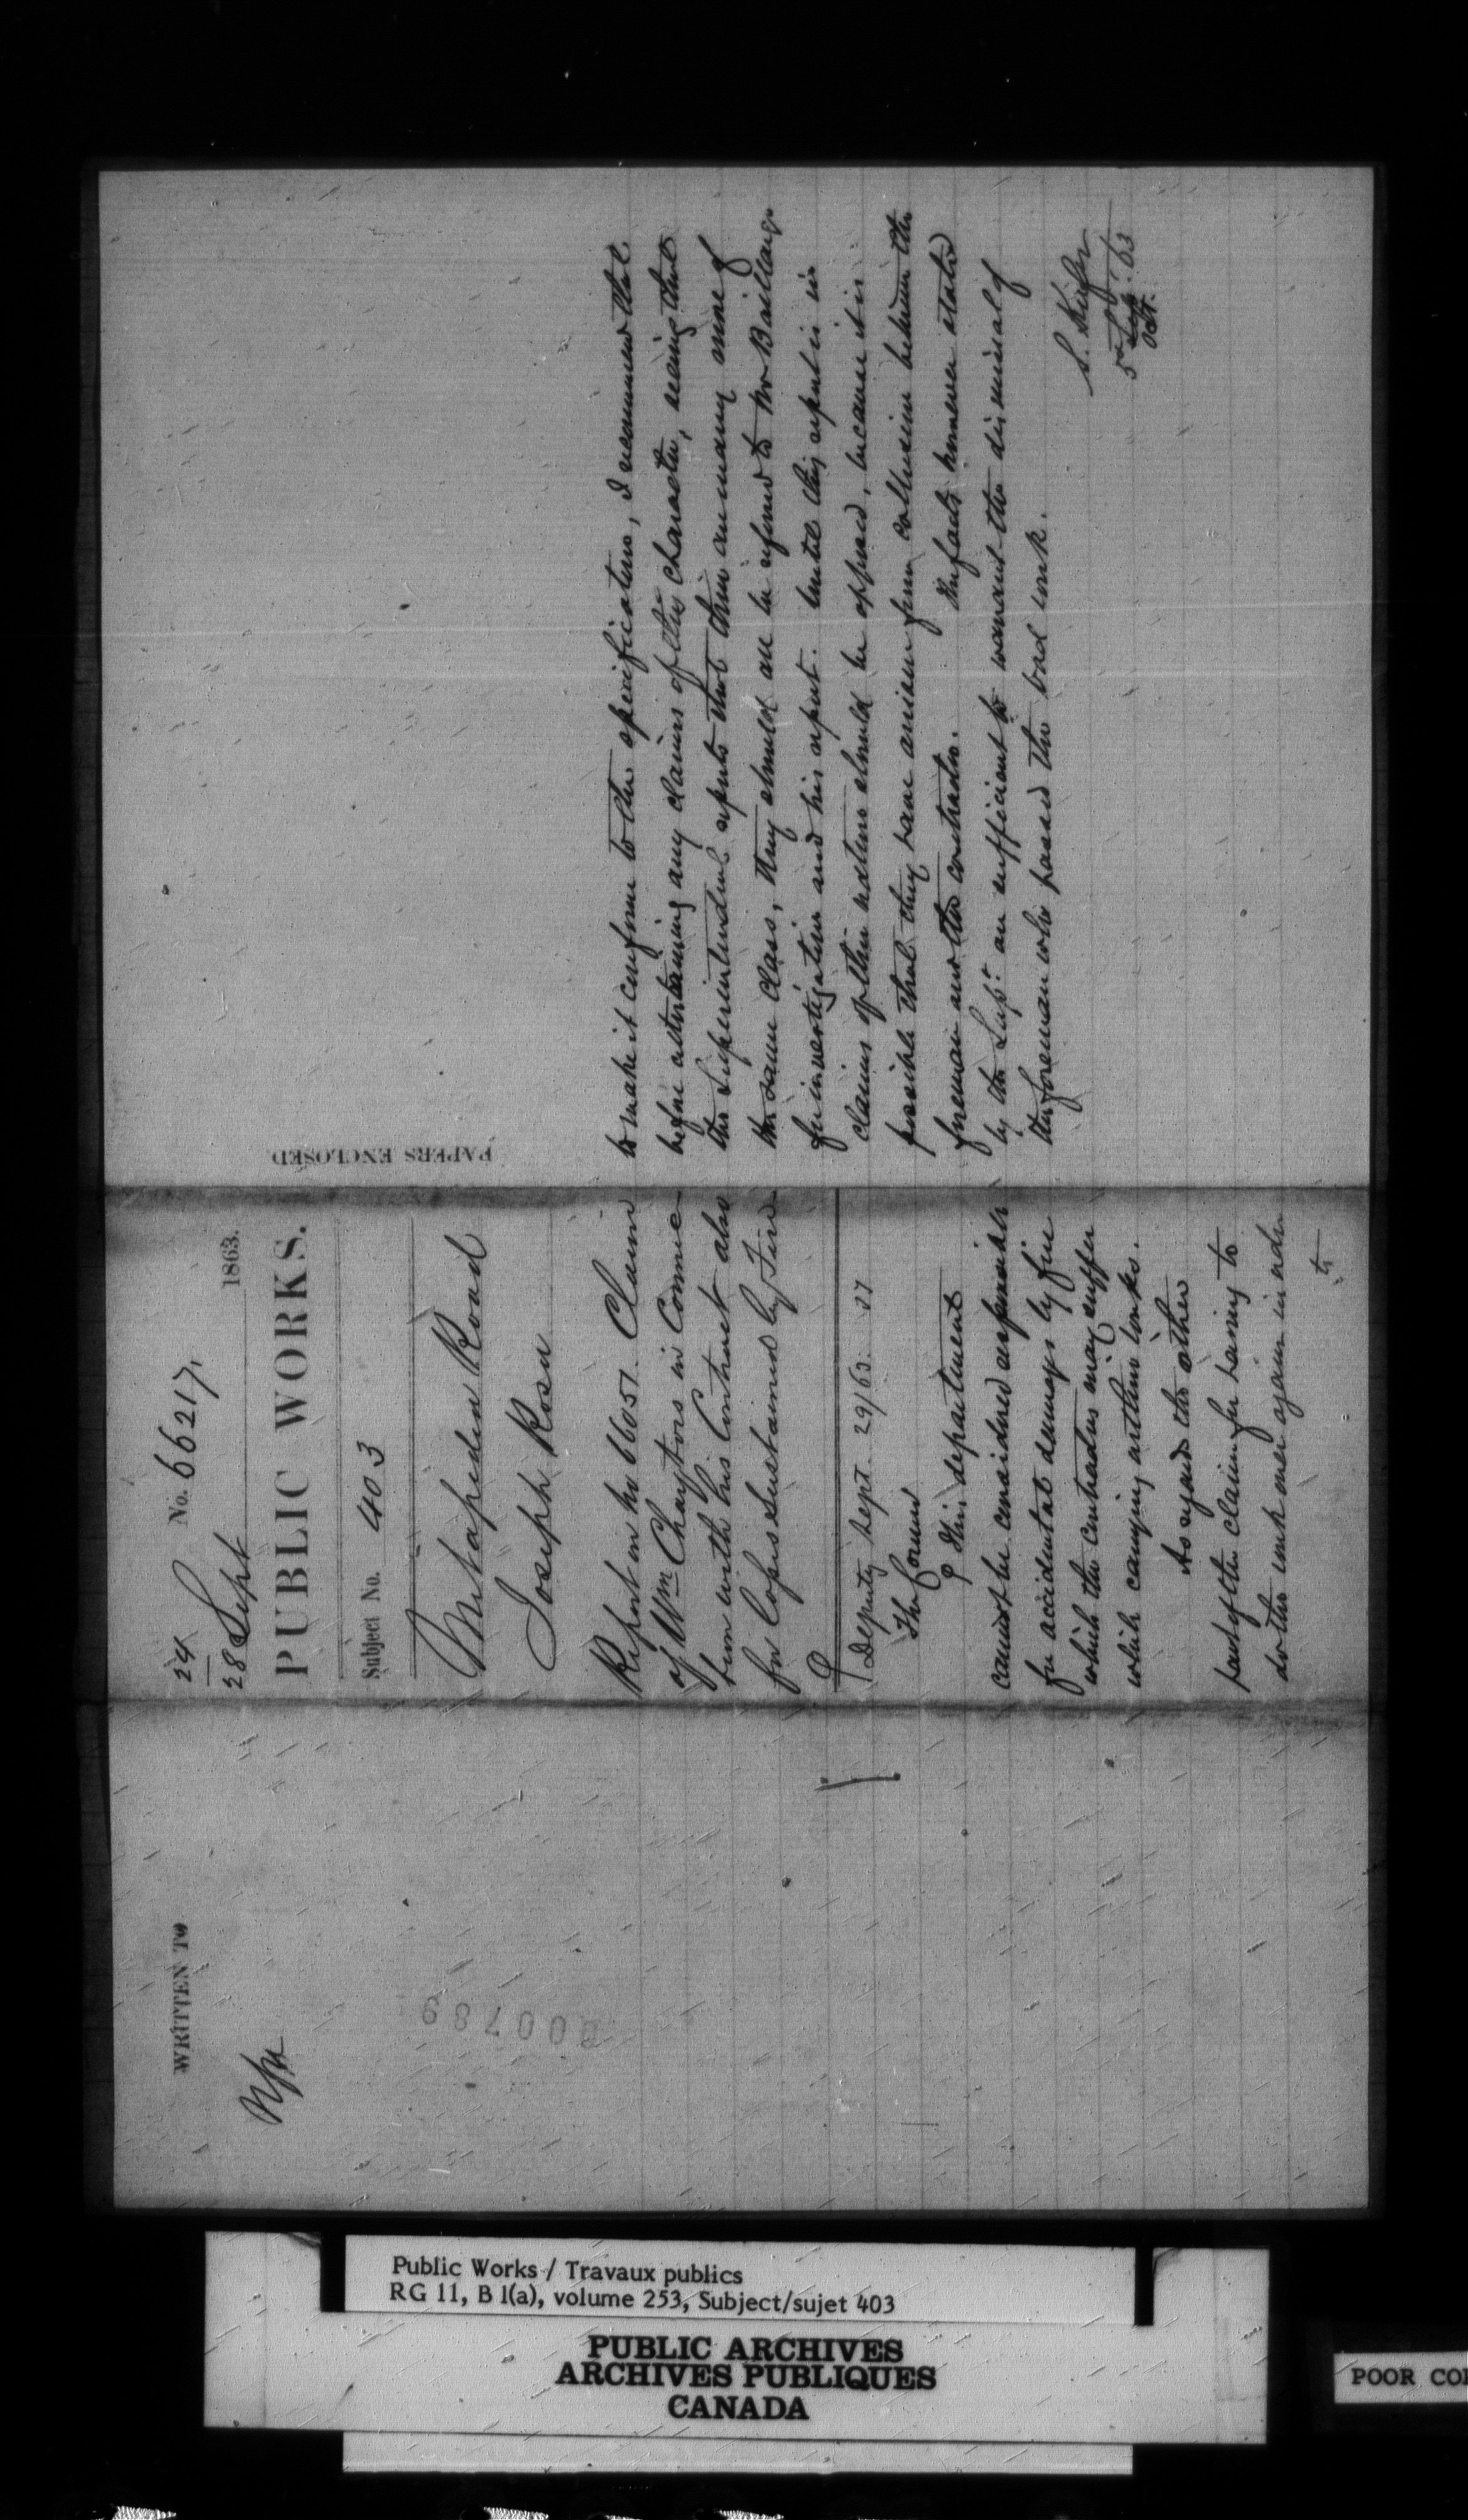 WRITTEN TO
000789
24
28 Sept
No. 66217,
1863.
PUBLIC WORKS.
Subject No. 403
Metapedia Road
Joseph Rosa
Report on No 66051. Claim
of Wm Chaytors in Connec-
tion with his Contract also
for Losses sustained by Fire
Deputy Sept. 29/63.
The Commr
This department
cannot be considered responsible
for accidental damages by fire
which the contractors may suffer
while carrying on their works.
As regards the other
part of the claim for having to
do the work over again in order
to
PAPERS ENCLOSED
to make it conform to the specifications, I recommend that
before entertaining any claims of this character, seeing that
the Superintendent reports that there are many more of
the same class, they should all be referred to Mr Baillairgé
for investigation and his report. Until this report is in
claims of this nature should be opposed, because it is
possible that they have arisen from collusion between the
foreman and the contractor. The facts however stated
by the Supt. are sufficient to warrant the dismissal of
the foreman who passed the bad work.
S. Keefer
5th Oct. 63
Public Works / Travaux publics
RG 11, B 1(a), volume 253, Subject/sujet 403
PUBLIC ARCHIVES
ARCHIVES PUBLIQUES
CANADA
POOR CO